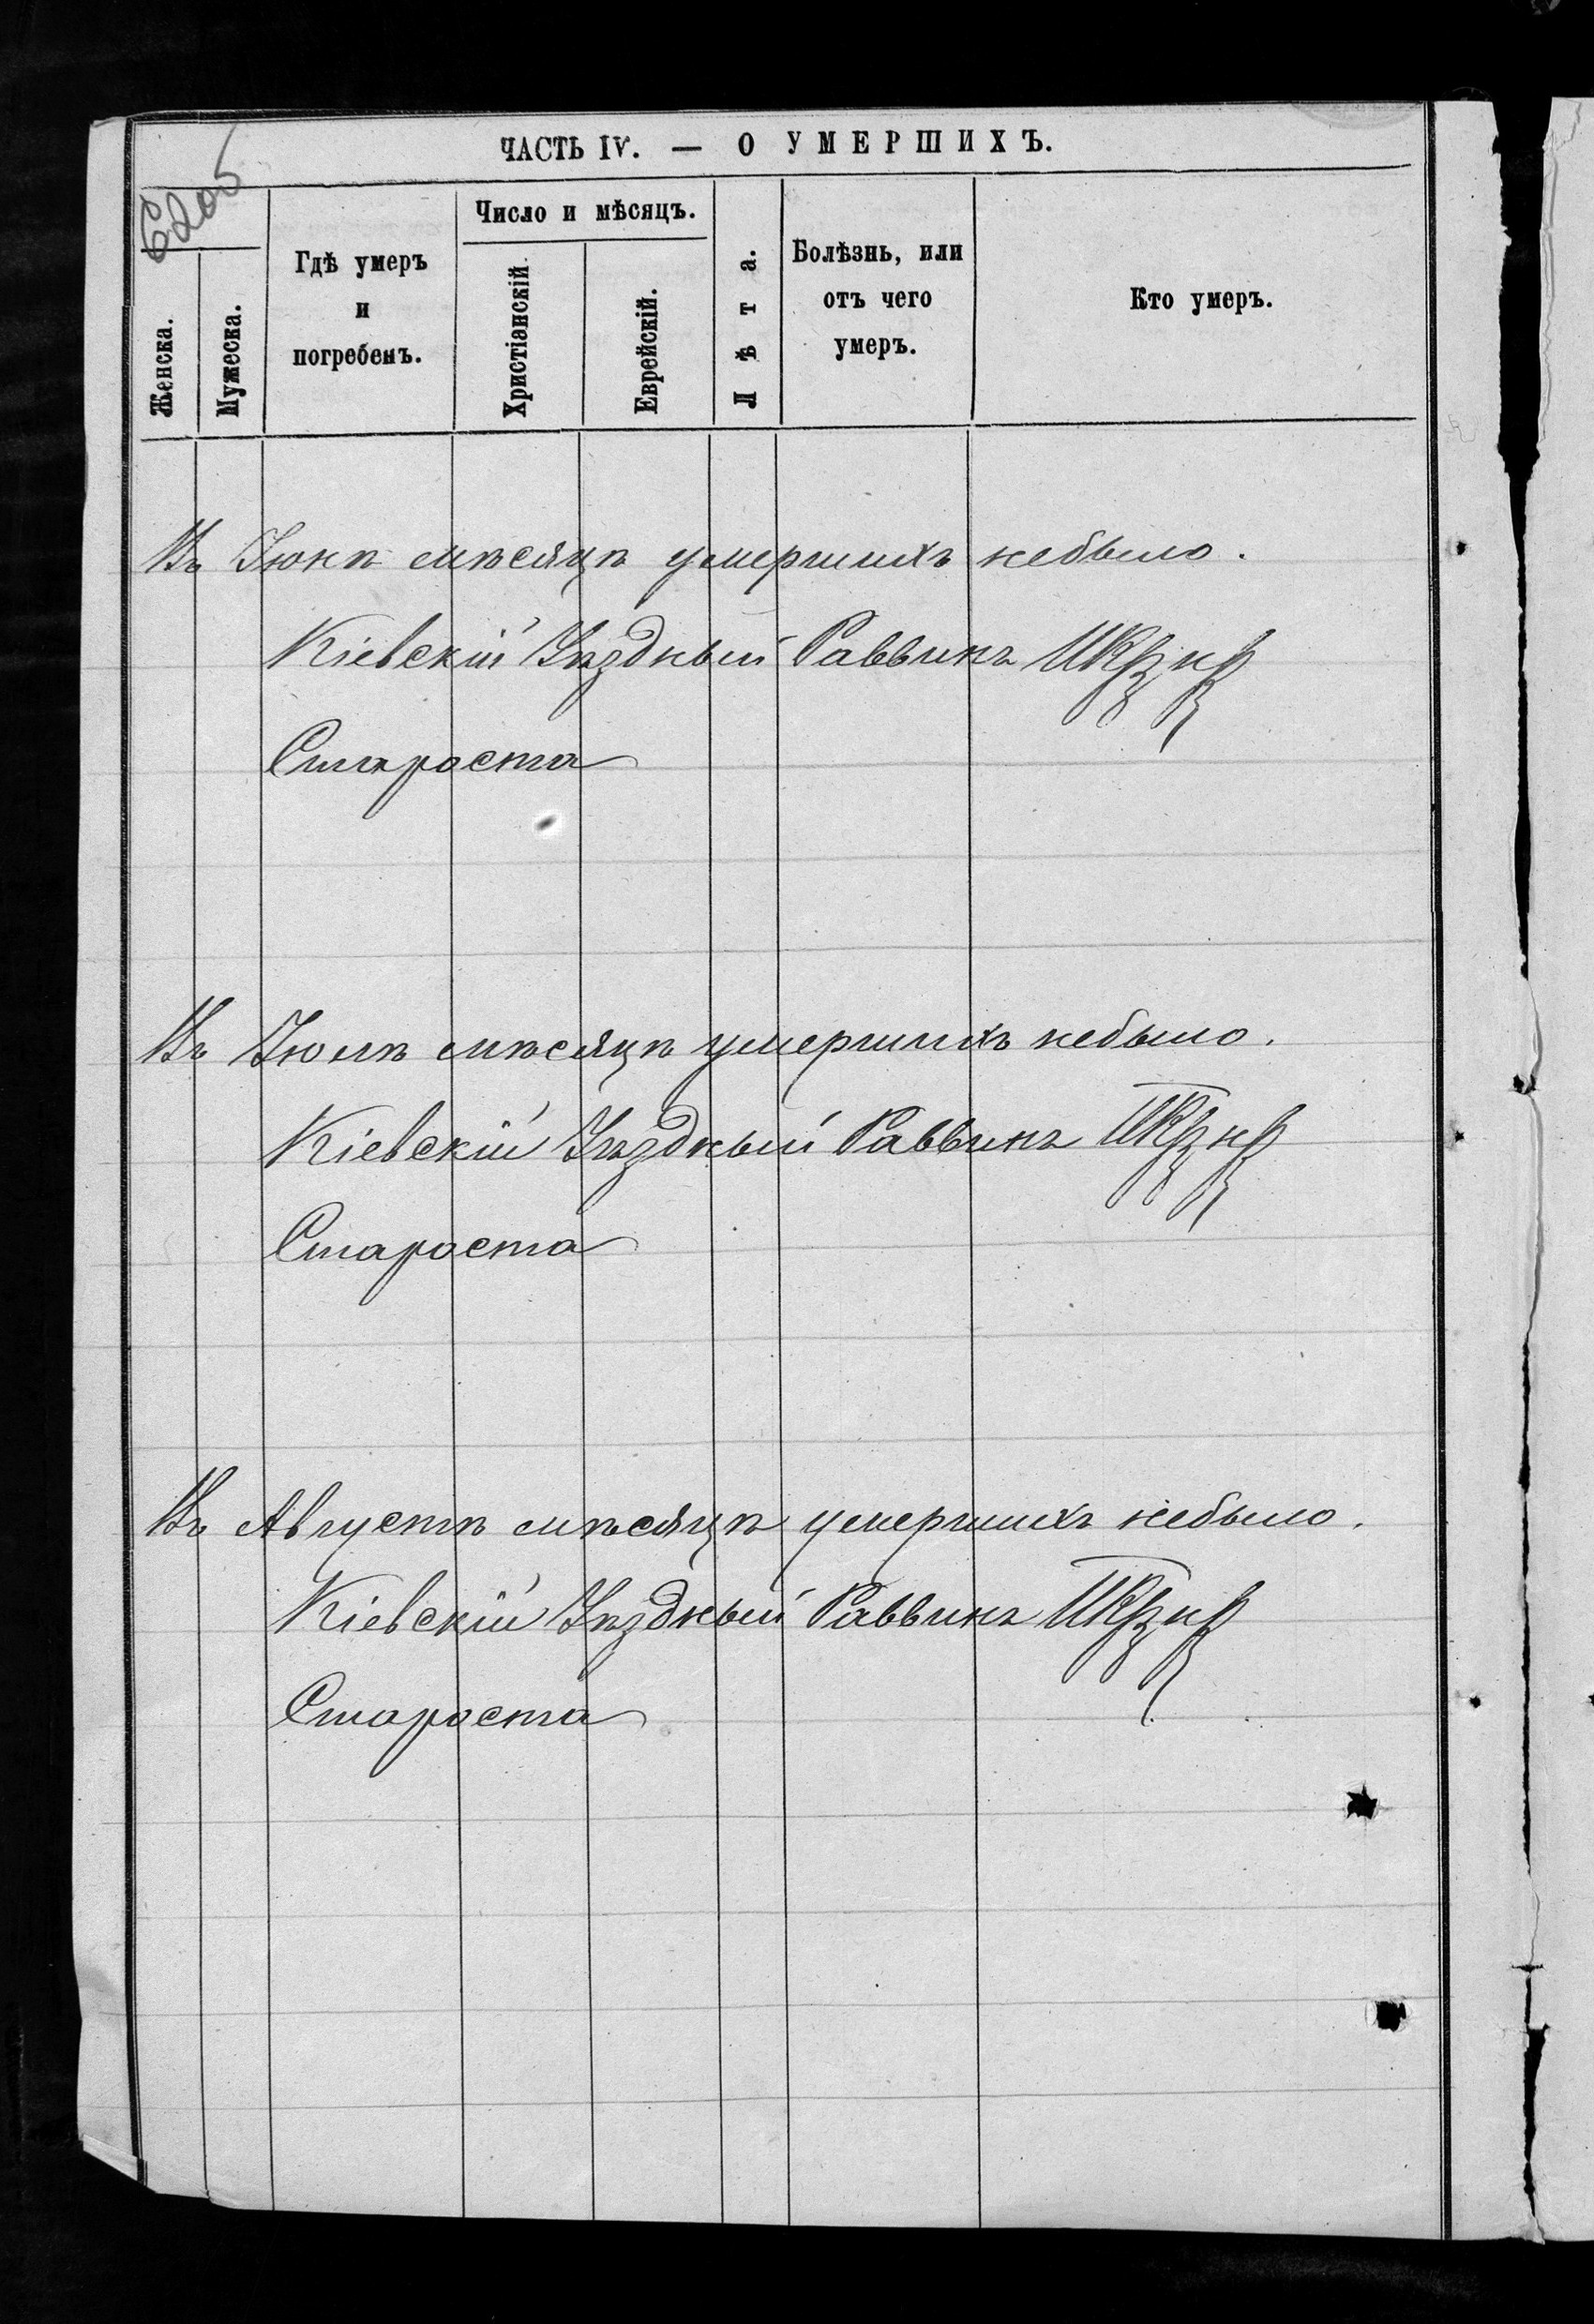 ЧАСТЬ IV. — О УМЕРШИХЪ.
Женска.
Мужеска.
Гдѣ умеръ
и
погребенъ.
Число и мѣсяцъ.
Христіанскій.
Еврейскій.
Лѣта.
Болѣзнь, или
отъ чего
умеръ.
Кто умеръ.
Въ Іюнѣ мѣсяцѣ умершихъ небыло.
Кіевскій Уѣздный Раввинъ
Староста
Въ Іюлѣ мѣсяцѣ умершихъ небыло.
Кіевскій Уѣздный Раввинъ
Староста
Въ Августѣ мѣсяцѣ умершихъ небыло.
Кіевскій Уѣздный Раввинъ
Староста